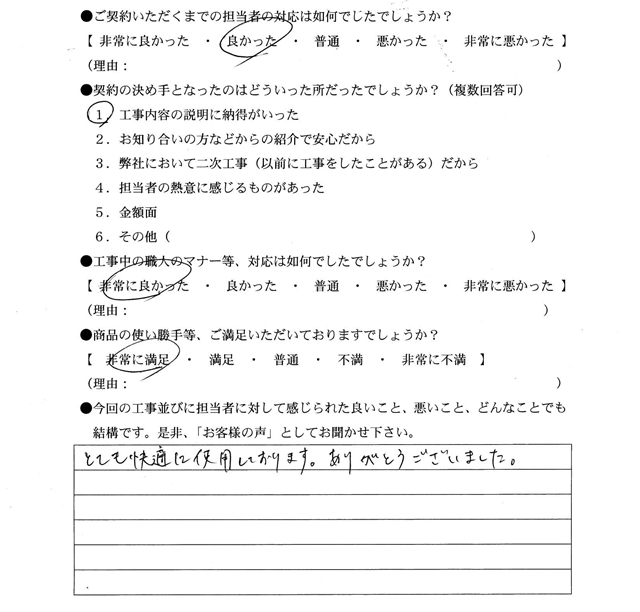 ●ご契約いただくまでの担当者の対応は如何でじたでしょうか？
【 非常に良かった ・ 良かった ・ 普通 ・ 悪かった ・ 非常に悪かった 】
（理由： ）
●契約の決め手となったのはどういった所だったでしょうか？（複数回答可）
１．工事内容の説明に納得がいった
２．お知り合いの方などからの紹介で安心だから
３．弊社において二次工事（以前に工事をしたことがある）だから
４．担当者の熱意に感じるものがあった
５．金額面
６．その他（ ）
●工事中の職人のマナー等、対応は如何でしたでしょうか？
【 非常に良かった ・ 良かった ・ 普通 ・ 悪かった ・ 非常に悪かった 】
（理由： ）
●商品の使い勝手等、ご満足いただいておりますでしょうか？
【 非常に満足 ・ 満足 ・ 普通 ・ 不満 ・ 非常に不満 】
（理由： ）
●今回の工事並びに担当者に対して感じられた良いこと、悪いこと、どんなことでも
結構です。是非、「お客様の声」としてお聞かせ下さい。
とても快適に使用しております。ありがとうございました。